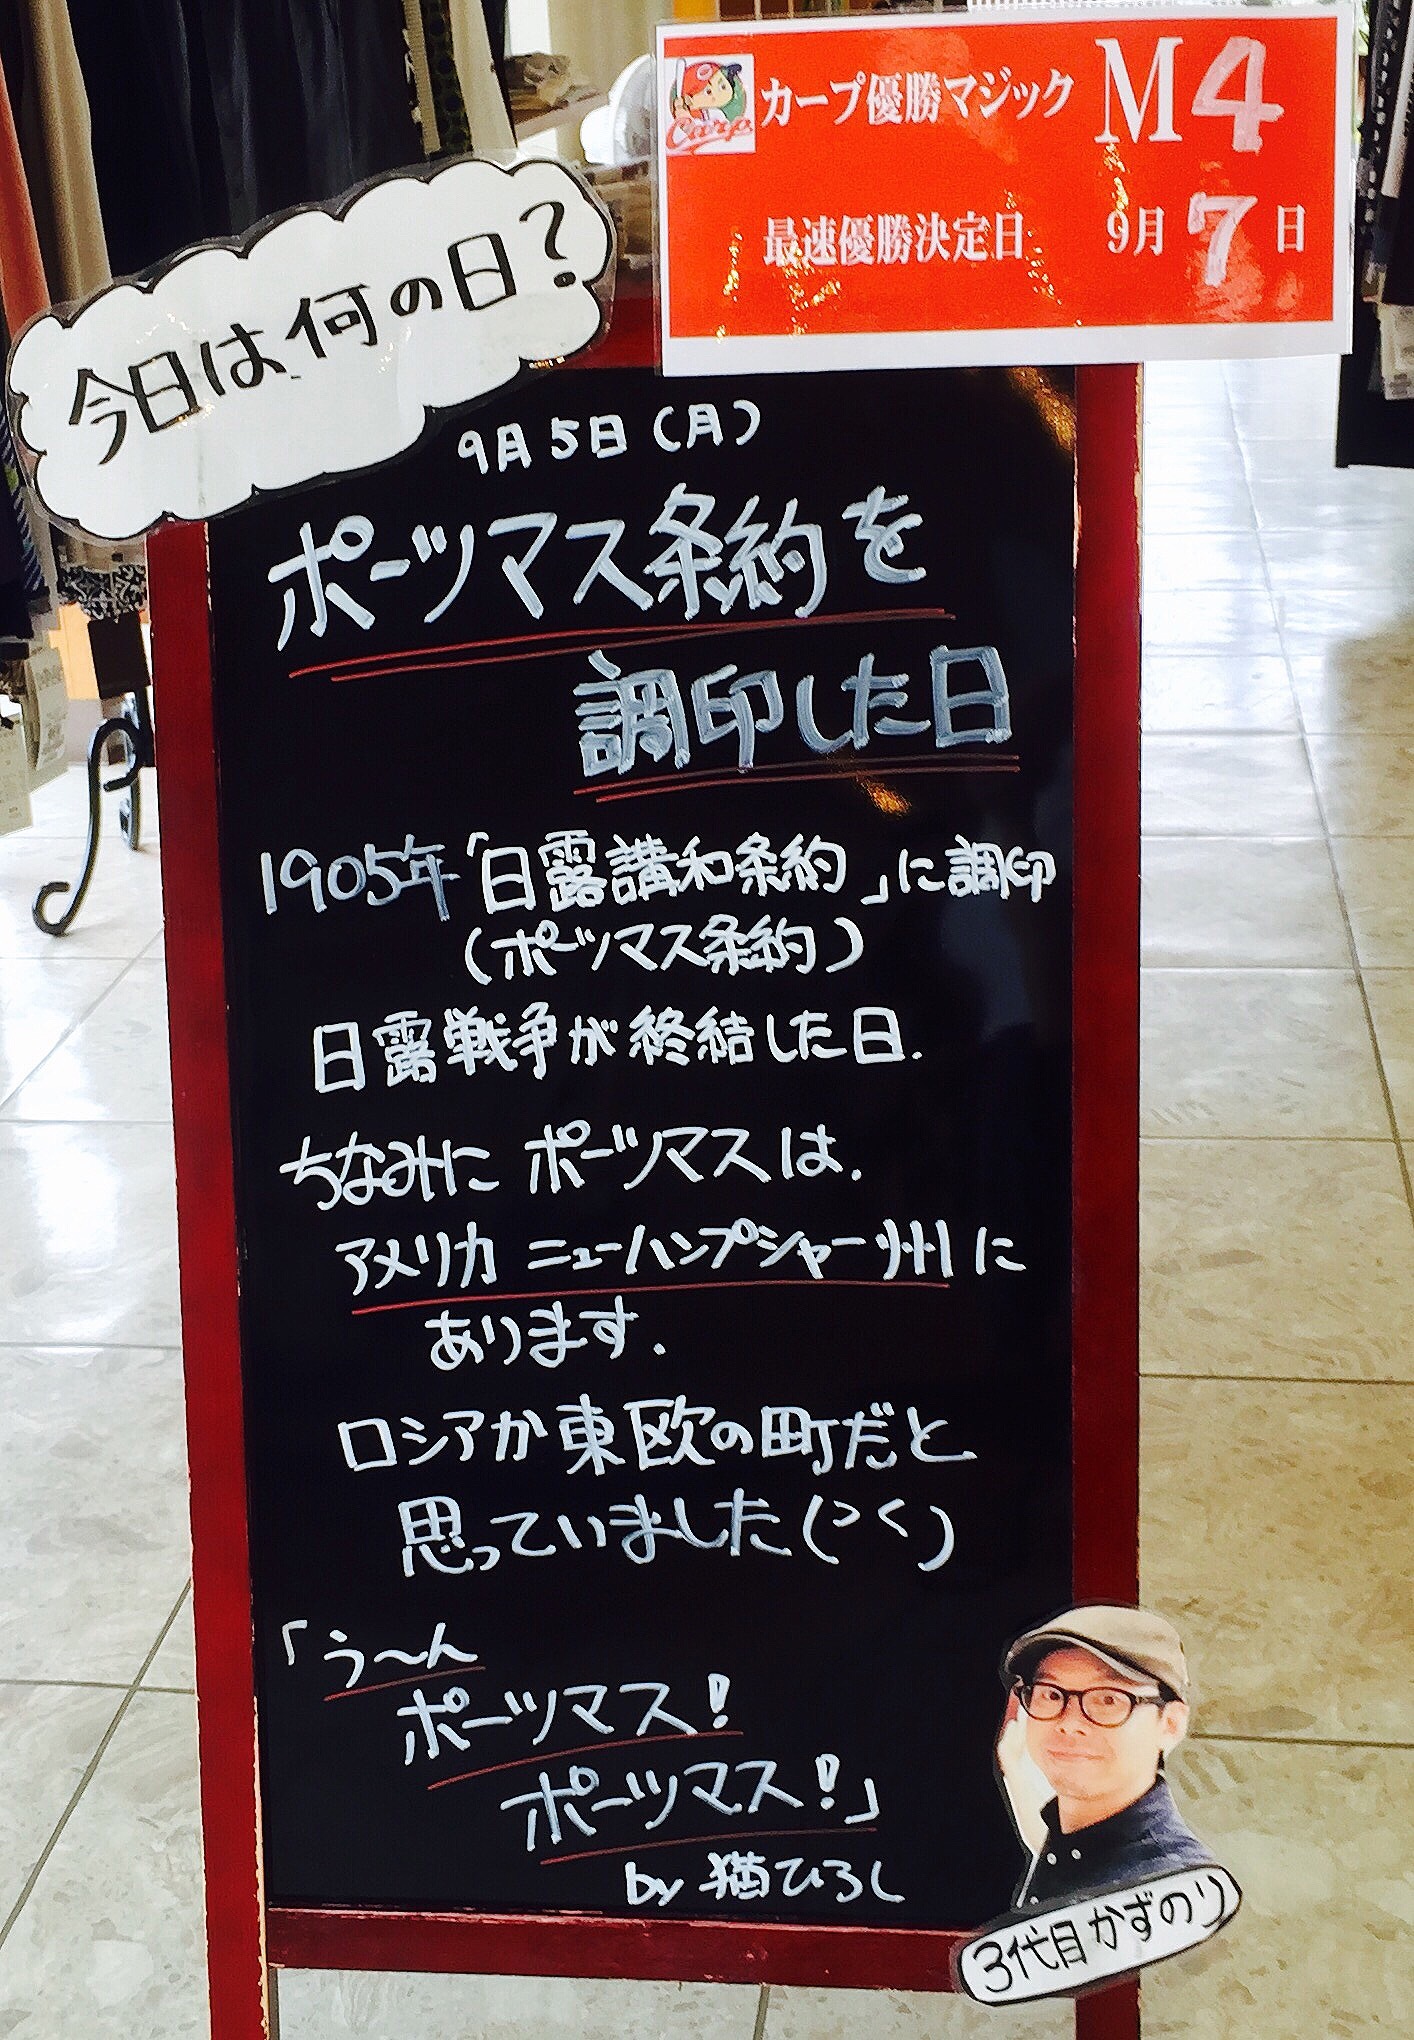 カープ優勝マジック M4
Carp
最速優勝決定日 9月7日
今日は何の日?
9月5日(月)
ポーツマス条約を
調印した日
1905年「日露講和条約」に調印
(ポーツマス条約)
日露戦争が終結した日.
ちなみに ポーツマスは.
アメリカ ニューハンプシャー州に
あります.
ロシアか東欧の町だと
思っていました(>く)
「う〜ん
ポーツマス!
ポーツマス!」
by 猫ひろし
3代目かずのり